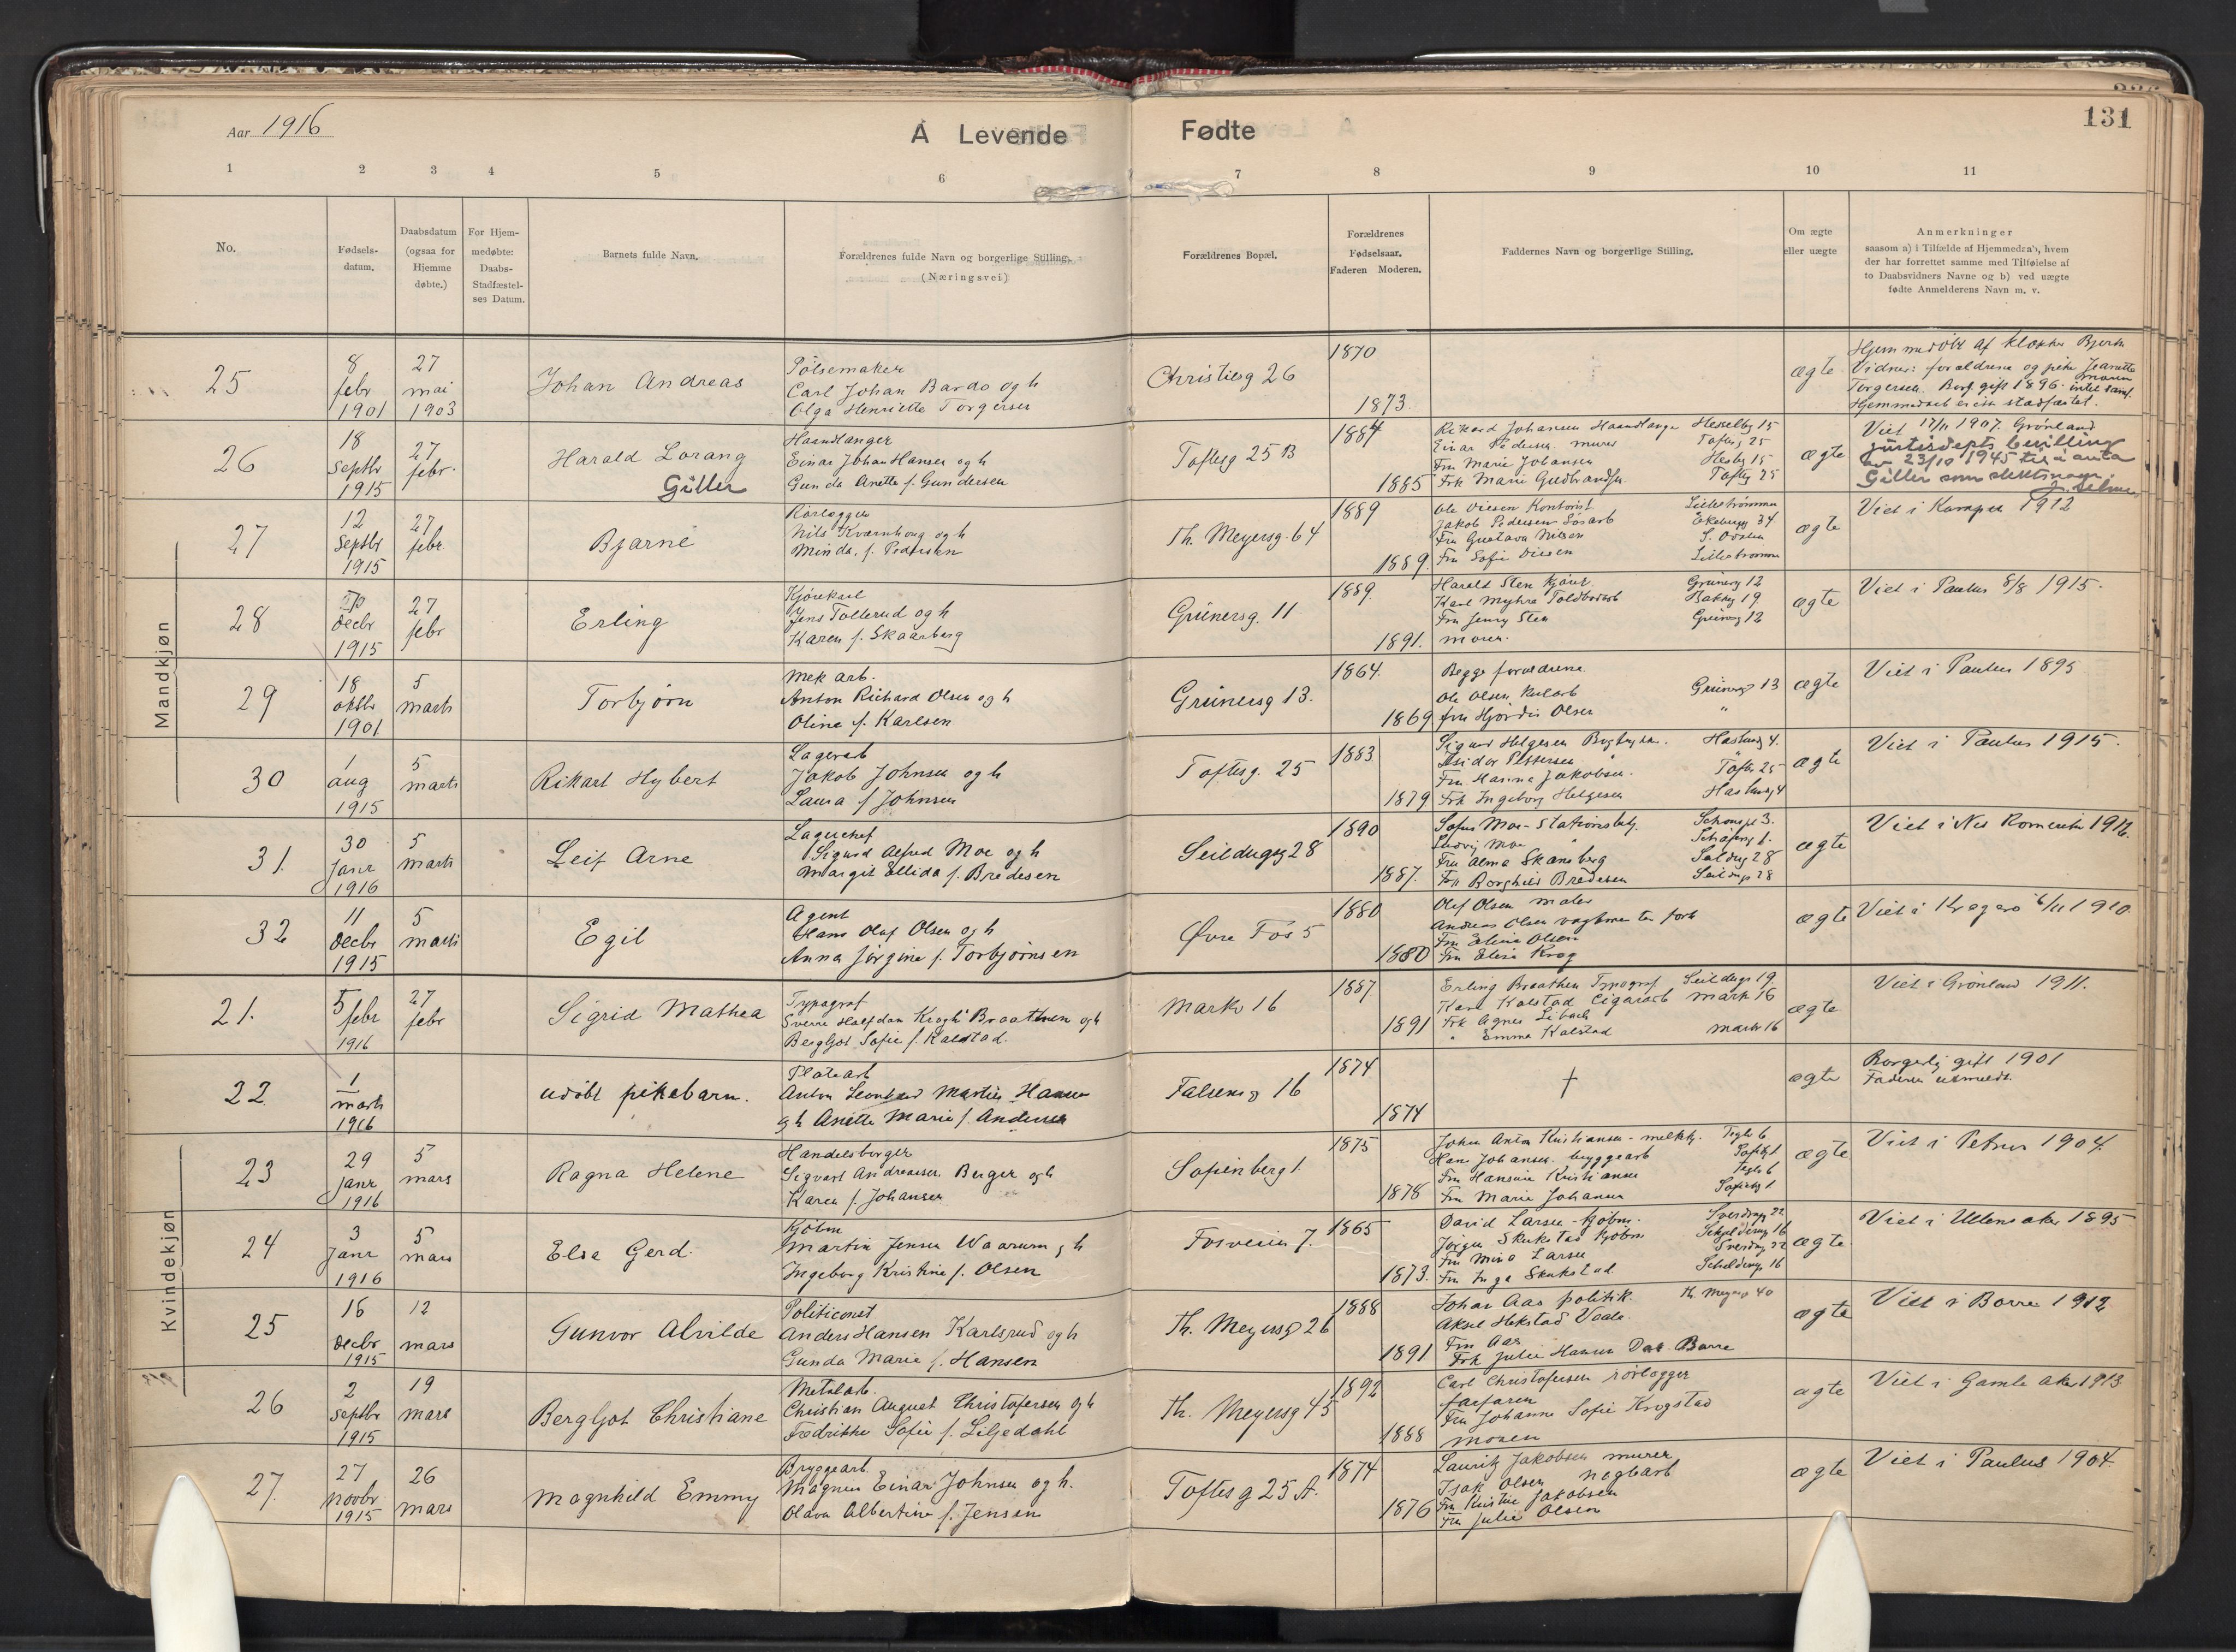 131
Aar 1916
A Levende Fødte
1 2 3 4 5 6 7 8 9 10 11
No.
Fødsels-
datum.
Daabsdatum
(ogsaa for
Hjemme
døbte.)
For Hjem-
medøbte:
Daabs-
Stadfæstel-
ses Datum.
Barnets fulde Navn.
Forældrenes fulde Navn og borgerlige Stilling.
(Næringsvei)
Forældrenes Bopæl.
Forældrenes
Fødselsaar.
Faderen Moderen.
Faddernes Navn og borgerlige Stilling.
Om ægte
eller uægte
Anmerkninger
saasom a) i Tilfælde af Hjemmedaab, hvem
der har forrettet samme med Tilføielse af
to Daabsvidners Navne og b) ved uægte
fødte Anmelderens Navn m. v.
Mandkjøn
25
8
febr
1901
27
mai
1903
Johan Andreas
Pølsemaker
Carl Johan Bardo og h
Olga Henriette Torgersen
Christiesg 26
1870
1873.
ægte
Hjemmedøbt af klokker
Vidner: forældrene og pike Jeanette
Torgersen. Borg. gift 1896.
26
18
Septbr
1915
27
febr.
Harald Lorang
Giller
Haandlanger
Einar Johan Hansen og h
Gunda Anette f. Gundersen
Toftesg 25 B
1884
1885
Rikard Johansen Haandlanger Hesselbg 15
Einar Pedersen murer Toftesg 25
Fru Marie Johansen Hesbg 15
Frk Marie Gudbrandsen Toftesg 25
ægte
Viet 17/11 1907. Grønland
justisdepts bevilling
av 23/10 1945 til å anta
Giller som slektsnavn.
27
12
Septbr
1915
27
febr.
Bjarne
Rørlægger
Nils Kvarnhaug og h
Minda f. Pedersen
Th. Meyersg. 64
1889
1889.
Ole Diesen Kontorist Lillestrømmen
Jakob Pedersen Ekebergg 34
Fru Gustava Nilsen
Fru Sofie Diesen Lillestrømmen
ægte
Viet i Kampen 1912
28
Decbr
1915
27
febr
Erling
Kjørekarl
Jens Tollerud og h
Karen f. Skaarberg
Grünersg. 11
1889.
1891.
Harald Sten Kjørek. Grünerg 12
Karl Myhre Toldbodarb Bakkeg 19
Fru Jenny Sten Grünerg 12
moren.
ægte
Viet i Paulus 8/8 1915.
29
18
oktbr
1901
5
marts
Torbjørn
Mek arb.
Anton Richard Olsen og h
Oline f. Karlsen
Grünersg 13.
1864.
1869
Begge forældrene
Ole Olsen Grünersg 13
fru Hjørdis Olsen "
ægte
Viet i Paulus 1895
30
1
aug
1915
5
marts
Rikart Hybert
Lagerarb
Jakob Johnsen og h
Laura f Johnsen
Toftesg. 25
1883
1879
Sigurd Helgesen
Isidor Pettersen "
Fru Hanna Jakobsen. Toftesg 25
Frk Ingeborg Helgesen
ægte
Viet i Paulus 1915.
31.
30
Janr
1916
5
marts
Leif Arne
Lagerchef
Sigurd Alfred Moe og h
Margit Ellida f. Bredesen
Seildugsg 28
1890
1887.
Sofus Moe - Stationsbetj.
Ludvig Moe "
Fru Alma Skaneberg Seildug 28
Frk Borghild Bredesen Seildugs 28
ægte
32
11
Decbr
1915
5
marts
Egil
Agent
Hans Oluf Olsen og h
Anna Jørgine f. Torbjørnsen
Øvre Fos 5
1880
1880
Olef Olsen maler
Andreas Olsen vagtmester
Fru Eline Olsen
Fru Elise Krog
ægte
Viet i Kragerø 6/11 1910.
Kvindekjøn
21.
5
febr
1916
27
febr
Sigrid Mathea
Typograf
Sverre Halfdan Krogh Braathen og h
Bergljot Sofie f. Kalstad.
Markv 16
1887
1891
Erling Braathen Typograf Seildugs 19.
Karl Kalstad Cigararb Markv 16
Frk Agnes
" Emma Kalstad Markv 16
ægte
Viet i Grønland 1911.
22
1
marts
1916
udøbt pikebarn.
Platearb
Anton Leonhard Martin Hansen
og h Anette Marie f. Andersen
Falsensg 16
1874
1874
†
ægte
Borgerlig gift 1901
Faderen utmeldt.
23
29
Janr
1916
5
mars
Ragna Helene
Handelsborger
Sigvart Andreasen Berger og h
Karen f. Johansen
Sofienberg 1.
1875
1878
Johan Anton Kristiansen - melkh. Teglv 6
Hans Johansen. bryggearb
Fru Hansine Kristiansen Teglv 6
Fru Marie Johansen
ægte
Viet i Petrus 1904.
24
3
Janr
1916
5
mars
Elsa Gerd.
Kjøbm
Martin Jensen Waarum og h
Ingeborg Kristine f. Olsen
Fosveien 7.
1865
1873.
David Larsen - Kjøbm. Sverdrupg 22
Jørgen Skukstad Kjøbm
Fru Mina Larsen Sverdrug 22
Fru Inga Skukstad
ægte
Viet i Ullensaker 1895
25
16
Decbr
1915
12
mars
Gunvor Alvilde
Politiconst
Anders Hansen Karlsrud og h
Gunda Marie f. Hansen
Th. Meyersg 26
1888
1891
Johan Aas politik. Th. Meyersg 40
Aksel Hekstad Vaale.
Fru Aas
Frk Julie Hansen Dal Borre
ægte
Viet i Borre 1912
26
2
Septbr
1915
19
mars
Bergljot Christiane
Metalarb.
Christian August Christofersen og h
Fredrikke Sofie f. Liljedahl
Th. Meyersg 45
1892
1888
Carl Christofersen rørlægger
farfaren
Fru Johanne Sofie Krogstad
moren
ægte
Viet i Gamle Aker 1913
27.
27
Novbr
1915
26
mars
Magnhild Emmy
Bryggearb.
Magnus Einar Johnsen og h.
Olava Albertine f. Jensen
Toftesg 25 A.
1874
1876
Lauritz Jakobsen murer
Isak Olsen
Fru Kristine Jakobsen
Fru Julie Olsen
ægte
Viet i Paulus 1904.